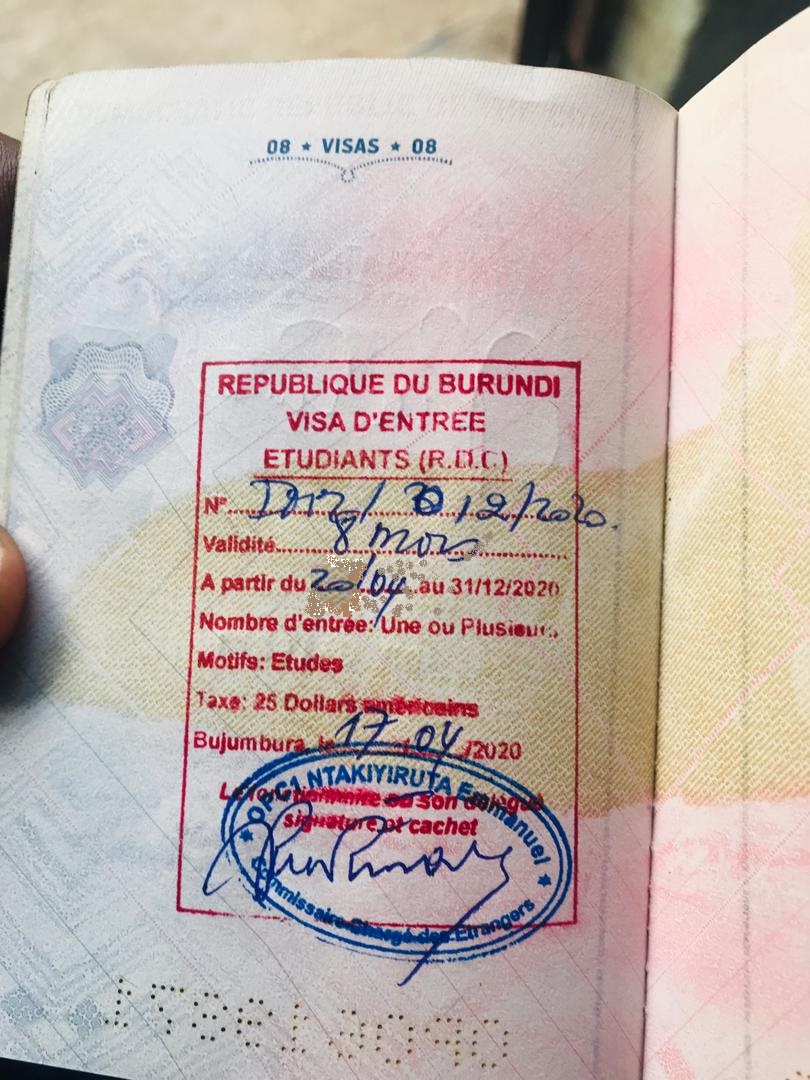 08 ★ VISAS ★ 08
REPUBLIQUE DU BURUNDI
VISA D'ENTREE
ETUDIANTS (R.D.C)
N° 12/2020.
Validité 8 mois
A partir du 20/04 au 31/12/2020
Nombre d'entrée: Une ou Plusieurs
Motifs: Etudes
Taxe: 25 Dollars américains
Bujumbura, le 17 04 /2020
Le fonctionnaire ou son délégué
signature et cachet
OPC1 NTAKIYIRUTA Emmanuel
Commissaire Chargé des Etrangers